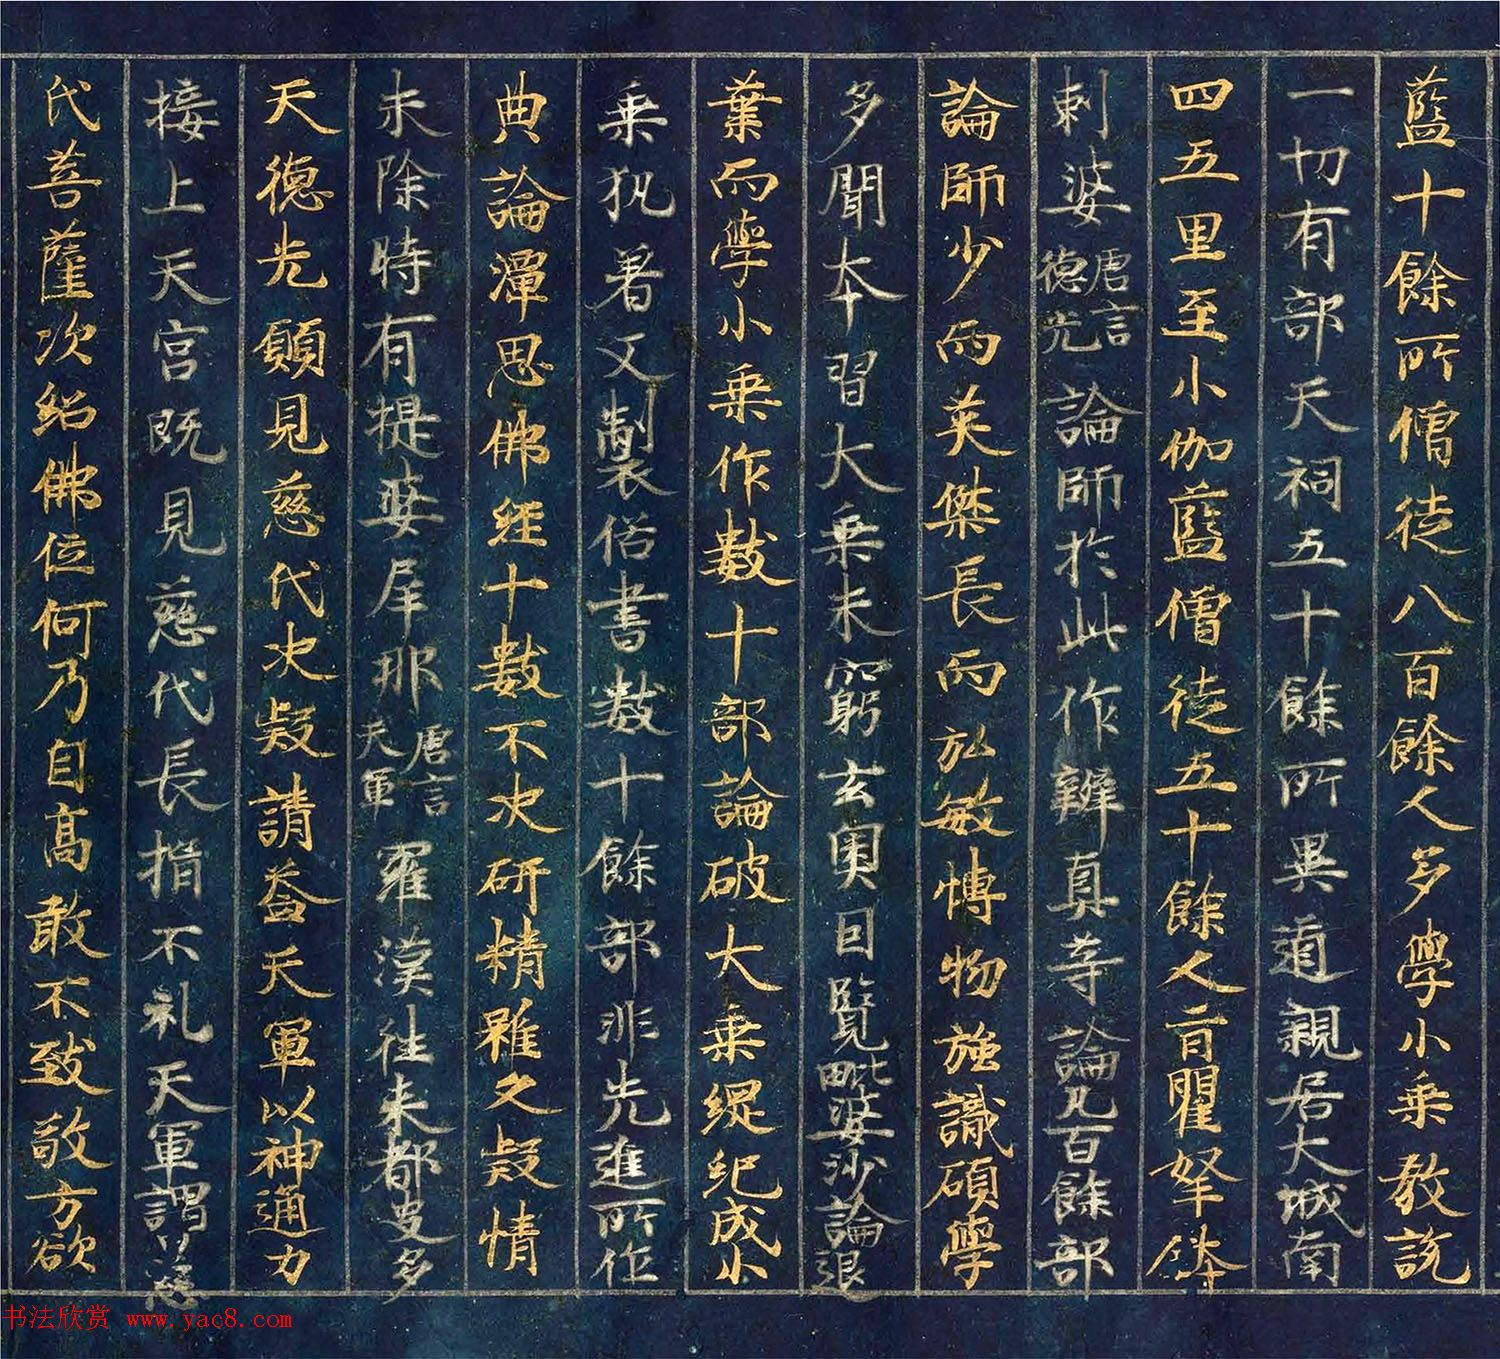 藍十餘所僧徒八百餘人多學小乘教說
一切有部天祠五十餘所異道親居大城南
四五里至小伽藍僧徒五十餘人有瞿拏鉢
剌婆唐言德光論師於此作辯真等論凡百餘部
論師少而英傑長而弘敏博物強識碩學
多聞本習大乘未窮玄奧因覽毗婆沙論退
業而學小乘作數十部論破大乘綱紀成小
乘執著又製俗書數十餘部非先進所作
典論潭思佛經十數不决研精雖久疑情
未除時有提婆犀那唐言天軍羅漢往來都史多
天德光願見慈代决疑請益天軍以神通力
接上天宮既見慈代長揖不礼天軍謂曰慈
代菩薩次紹佛位何乃自高敢不致敬方欲
书法欣赏 www.yac8.com